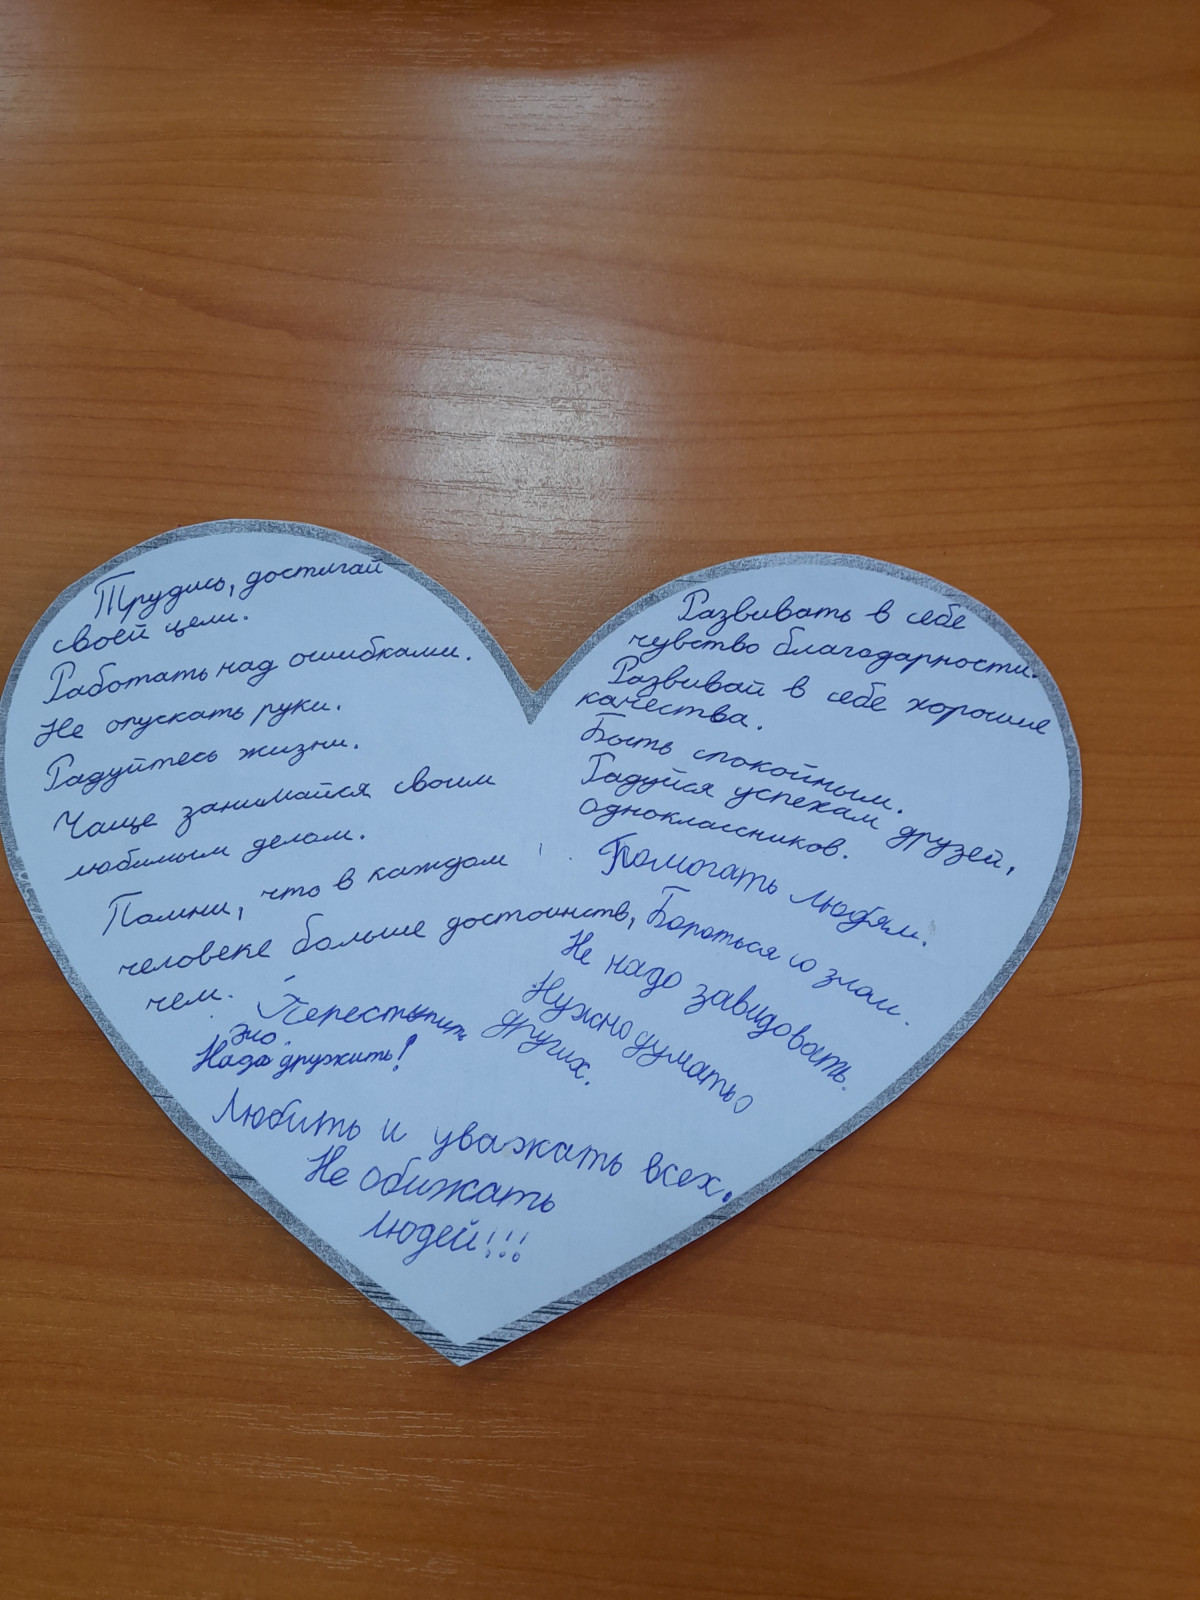 Трудись, достигай
своей цели.
Работать над ошибками.
Не опускать руки.
Радуйтесь жизни.
Чаще занимайся своим
любимым делом.
Помни, что в каждом
человеке больше достоинств,
чем.
Переступить
эго.
Надо дружить!
Развивать в себе
чувство благодарности.
Развивай в себе хорошие
качества.
Быть спокойным.
Радуйся успехам друзей,
одноклассников.
Помогать людям.
Бороться со злом.
Не надо завидовать.
Нужно думать о
других.
Любить и уважать всех.
Не обижать
людей!!!